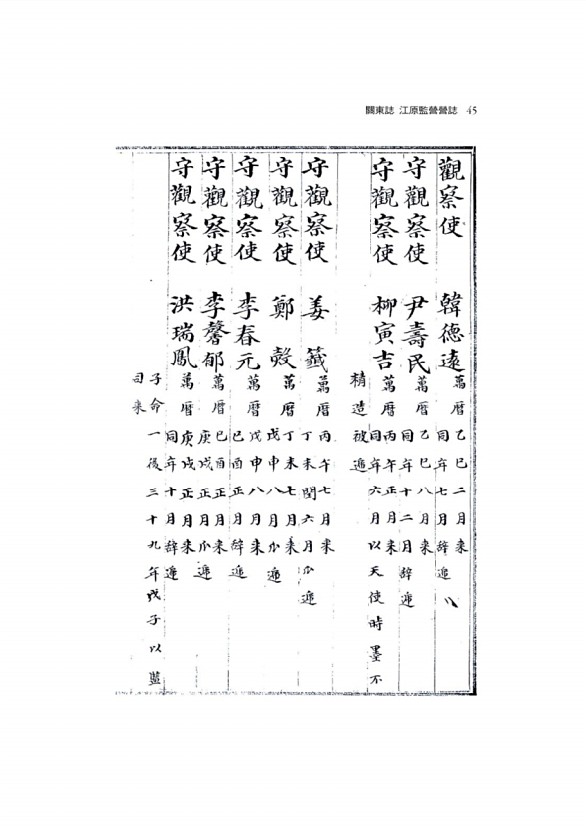 關東誌 江原監營營誌 45
觀察使 韓德遠 萬曆乙巳二月来
同年七月辞遞
守觀察使 尹壽民 萬曆乙巳八月来
同年十二月辞遞
守觀察使 柳寅吉 萬曆丙午正月来
同年六月以天使時墨不
精造被遞
守觀察使 姜籤 萬曆丙午七月来
丁未閏六月瓜遞
守觀察使 鄭㱿 萬曆丁未七月来
戊申八月瓜遞
守觀察使 李春元 萬曆戊申八月来
己酉正月辞遞
守觀察使 李馨郁 萬曆己酉正月来
庚戌正月瓜遞
守觀察使 洪瑞鳳 萬曆庚戌正月来
同年十月辞遞
子命一後三十九年戊子以監
司来